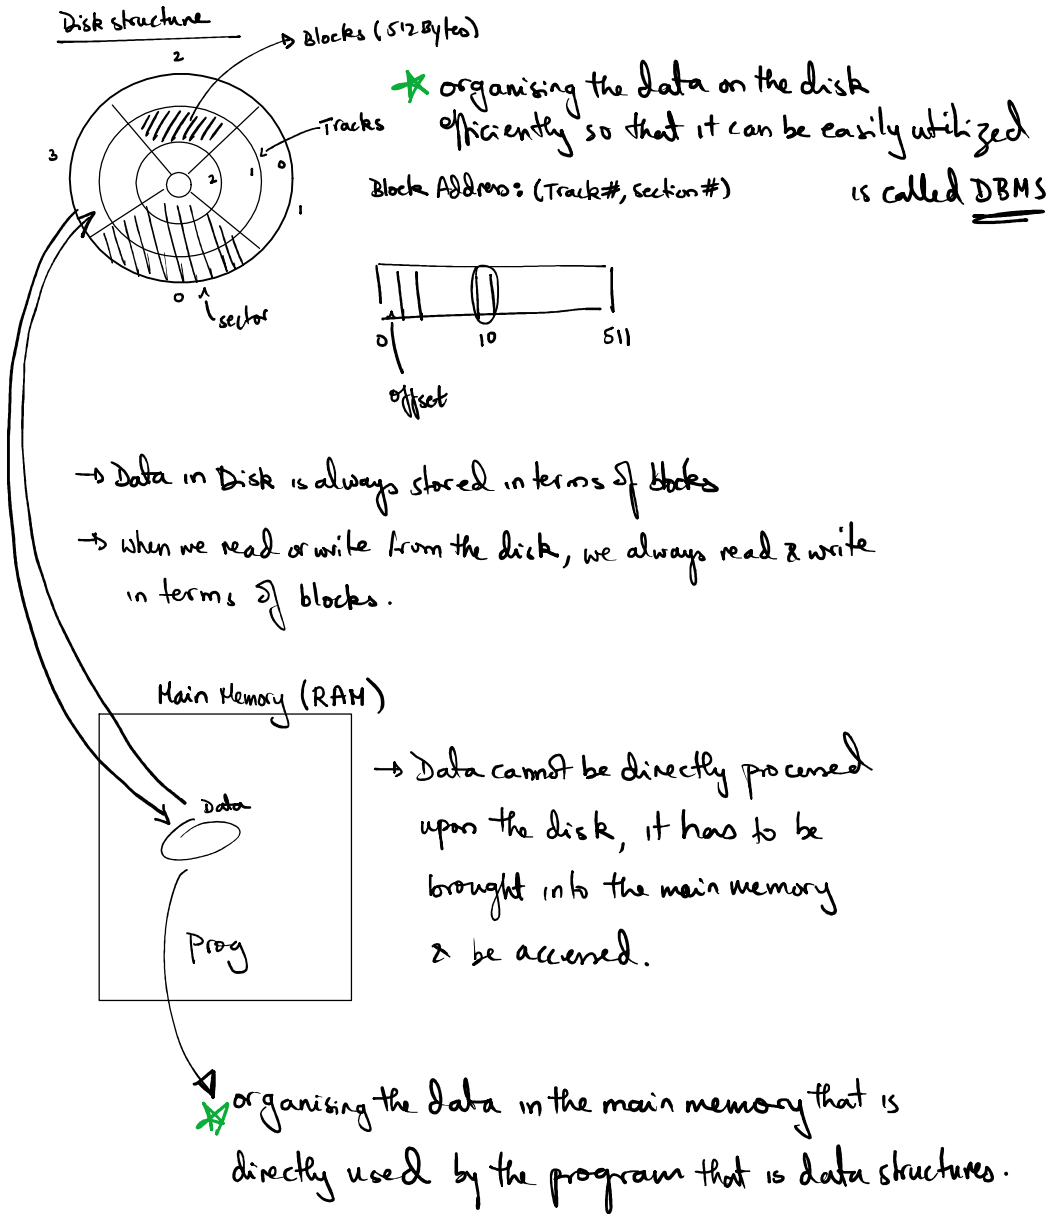 Disk structure
Blocks (512Bytes)
2
organising the data on the disk
efficiently so that it can be easily utilized
is called DBMS
Tracks
3
0
1
2
1
0
sector
Block Address: (Track#, section#)
0
10
511
offset
→ Data in Disk is always stored in terms of blocks
→ when we read or write from the disk, we always read & write
in terms of blocks.
Main Memory (RAM)
Data
Prog
→ Data cannot be directly processed
upon the disk, it has to be
brought into the main memory
& be accessed.
organising the data in the main memory that is
directly used by the program that is data structures.